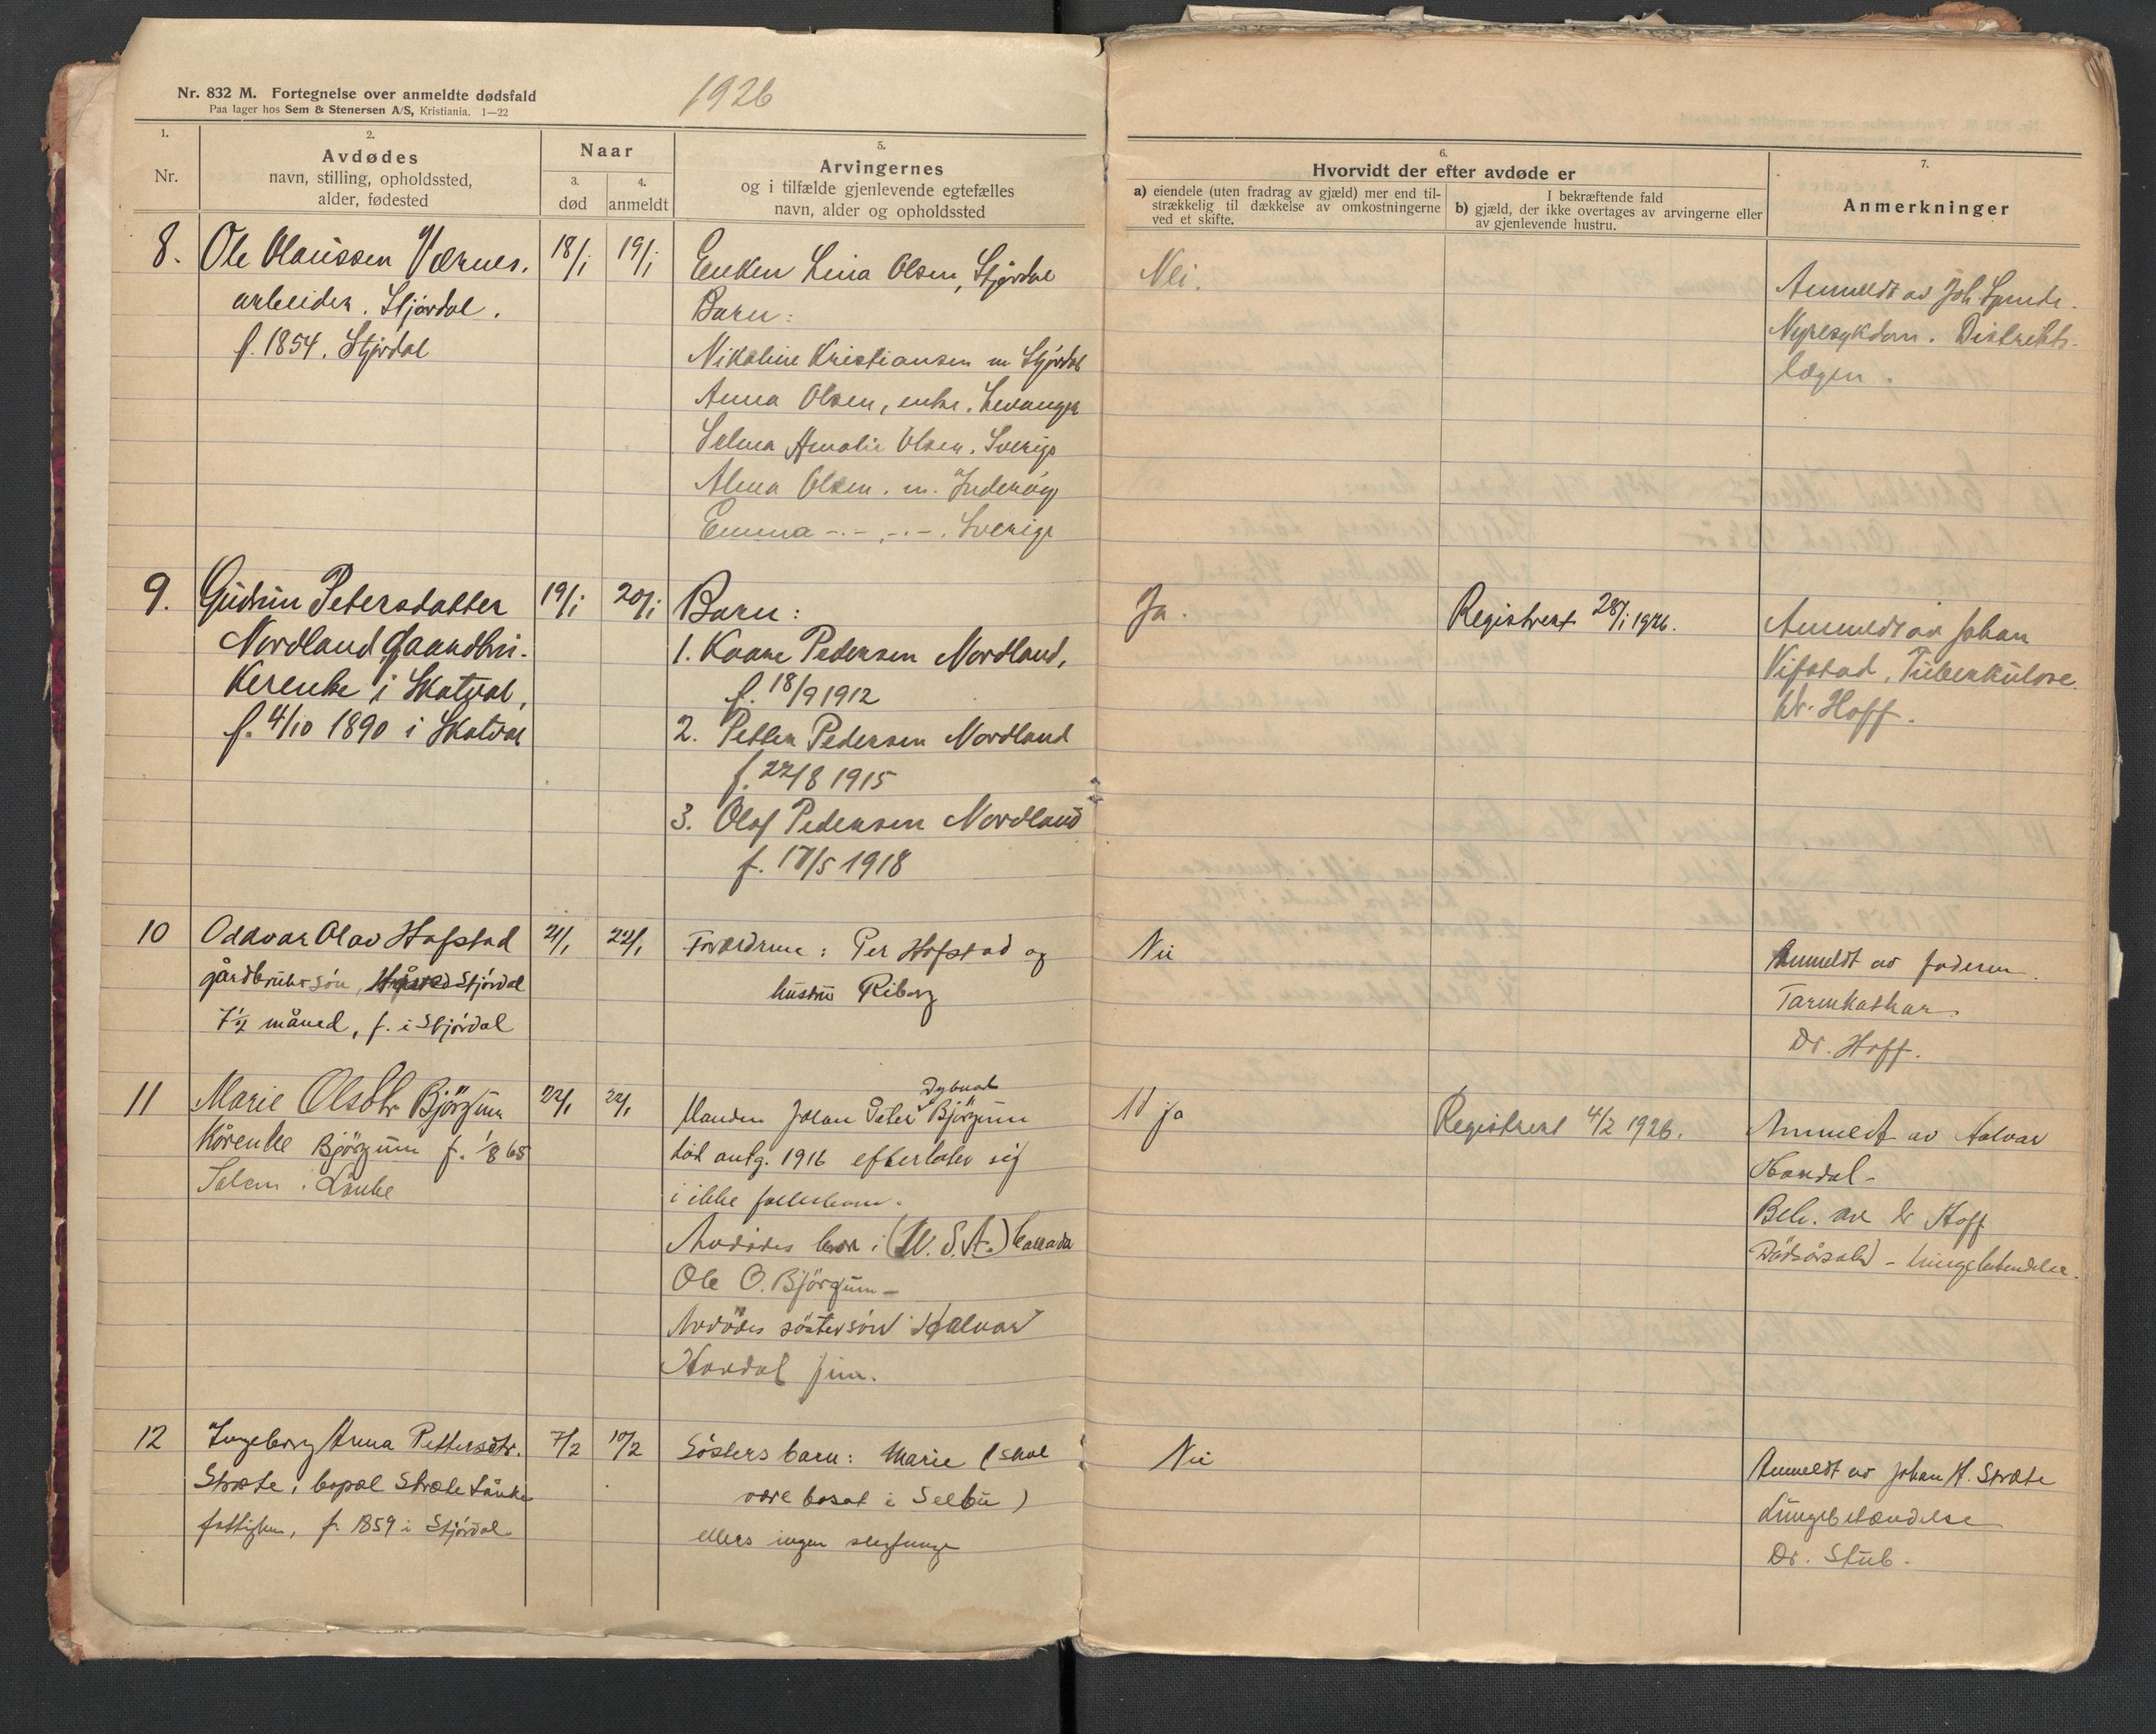 Nr. 832 M. Fortegnelse over anmeldte dødsfald
Paa lager hos Sem & Stenersen A/S, Kristiania. 1—22
1926
1.
Nr.
2.
Avdødes
navn, stilling, opholdssted,
alder, fødested
Naar
3.
død
4.
anmeldt
5.
Arvingernes
og i tilfælde gjenlevende egtefælles
navn, alder og opholdssted
6.
Hvorvidt der efter avdøde er
a) eiendele (uten fradrag av gjæld) mer end til-
strækkelig til dækkelse av omkostningerne
ved et skifte.
I bekræftende fald
b) gjæld, der ikke overtages av arvingerne eller
av gjenlevende hustru.
7.
Anmerkninger
8.
Ole Olaussen Værnes.
arbeider. Stjørdal.
f. 1854. Stjørdal
18/1
19/1
Enken Lina Olsen, Stjørdal
Barn:
Nikoline Kristiansen m Stjørdal
Anna Olsen, enke. Levanger
Selma Amalie Olsen. Sverige
Alma Olsen. m. Inderøy
Emma -.- ,-.-. Sverige
Nei.
Anmeldt av Joh
Nyresykdom. Distrikts-
lægen.
9.
Gudrun Petersdatter
Nordland Gaardbru-
kerenke i Skatval,
f. 4/10 1890 i Skatval
19/1
20/1
Barn:
1. Kaare Pedersen Nordland,
f. 18/9 1912
2. Petter Pedersen Nordland
f. 22/8 1915
3. Olaf Pedersen Nordland
f. 17/5 1918
Ja.
Registrert 28/1 1926.
Anmeldt av Johan
Vifstad, Tuberkulose.
Dr. Hoff.
10
Oddvar Olav Hofstad
gårdbruker søn, Stjørdal
7½ måned, f. i Stjørdal
21/1
22/1
Forældrene: Per Hofstad og
hustru Riborg
Nei
Anmeldt av faderen.
Tarmkathar.
Dr. Hoff.
11
Marie Olsdtr Björgum
Kårenke Björgum f. 1/8 65
i Lånke
22/1
22/1
Dybvad
Manden Johan Peter Björgum
död 1916 efterlater sig
i ikke
Avdödes bror i (U. S. A.) Canada
Ole O. Björgum -
Avdödes søstersön Halvar
Havdal jun.
ja
Registrert 4/2 1926.
Anmeldt av Halvar
Havdal -
Beh. av dr Hoff
Dödsårsak - lungebetendelse.
12
Ingeborg Anna Pettersdtr.
Stræte, bopæl Stræte Lånke
fattiglem, f. 1859 i Stjørdal.
7/2
10/2
Søsters barn: Marie (skal
være bosat i Selbu)
ellers ingen slegtninge
Nei
Anmeldt av Johan A. Stræte
Lungebetændelse
Dr. Stub.